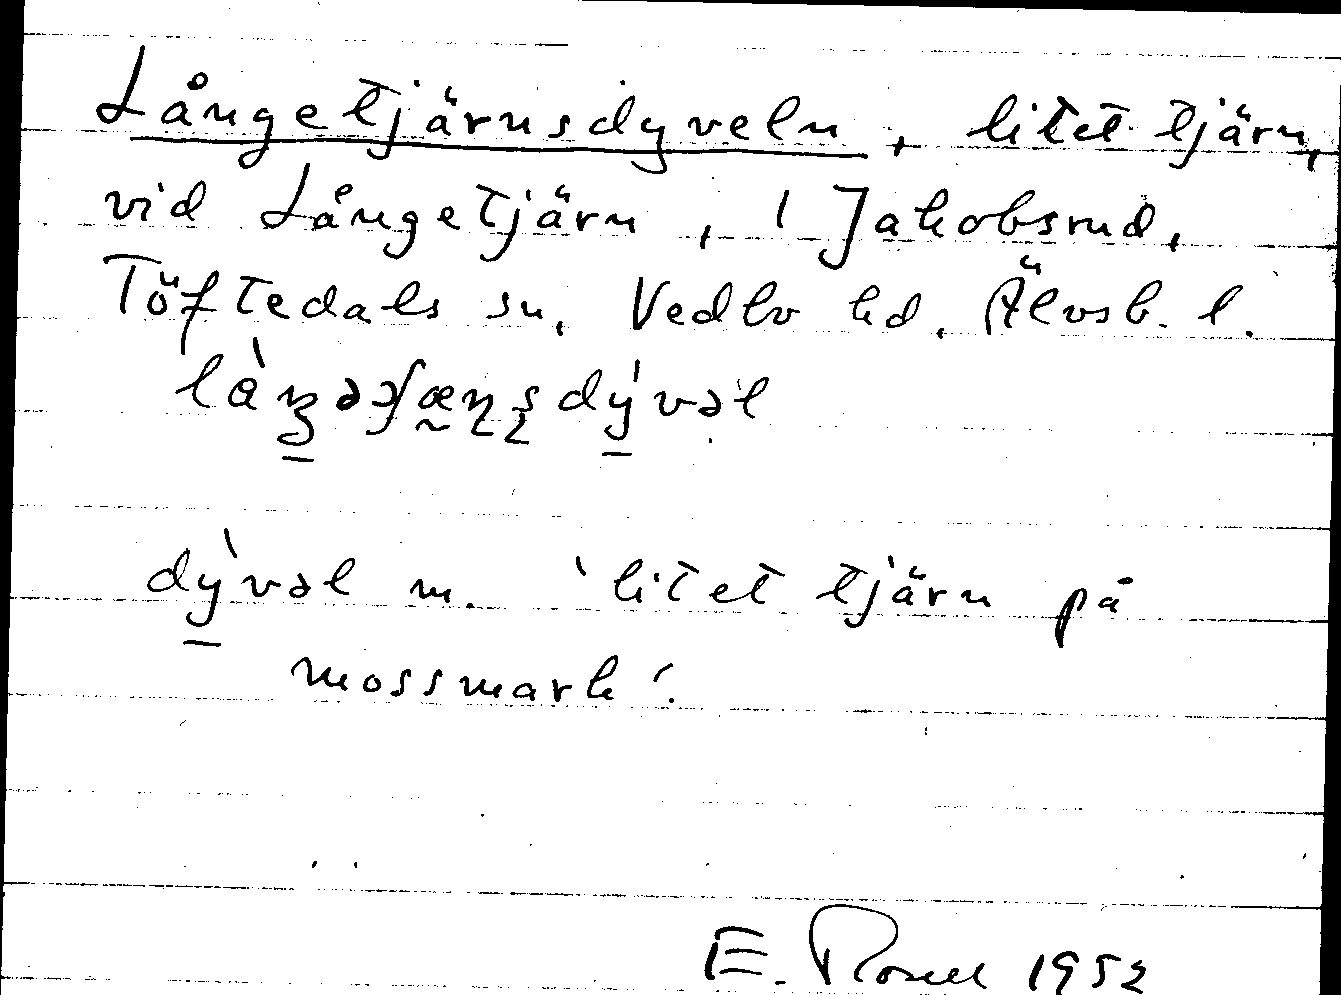 Långetjärnsdyveln, litet tjärn,
vid Långetjärn, 1 Jakobsrud,
Töftedals sn, Vedbo hd. Älvsb. l.
dỳ̱vəl m. 'litet tjärn på
mossmark'.
E. Rosell 1952